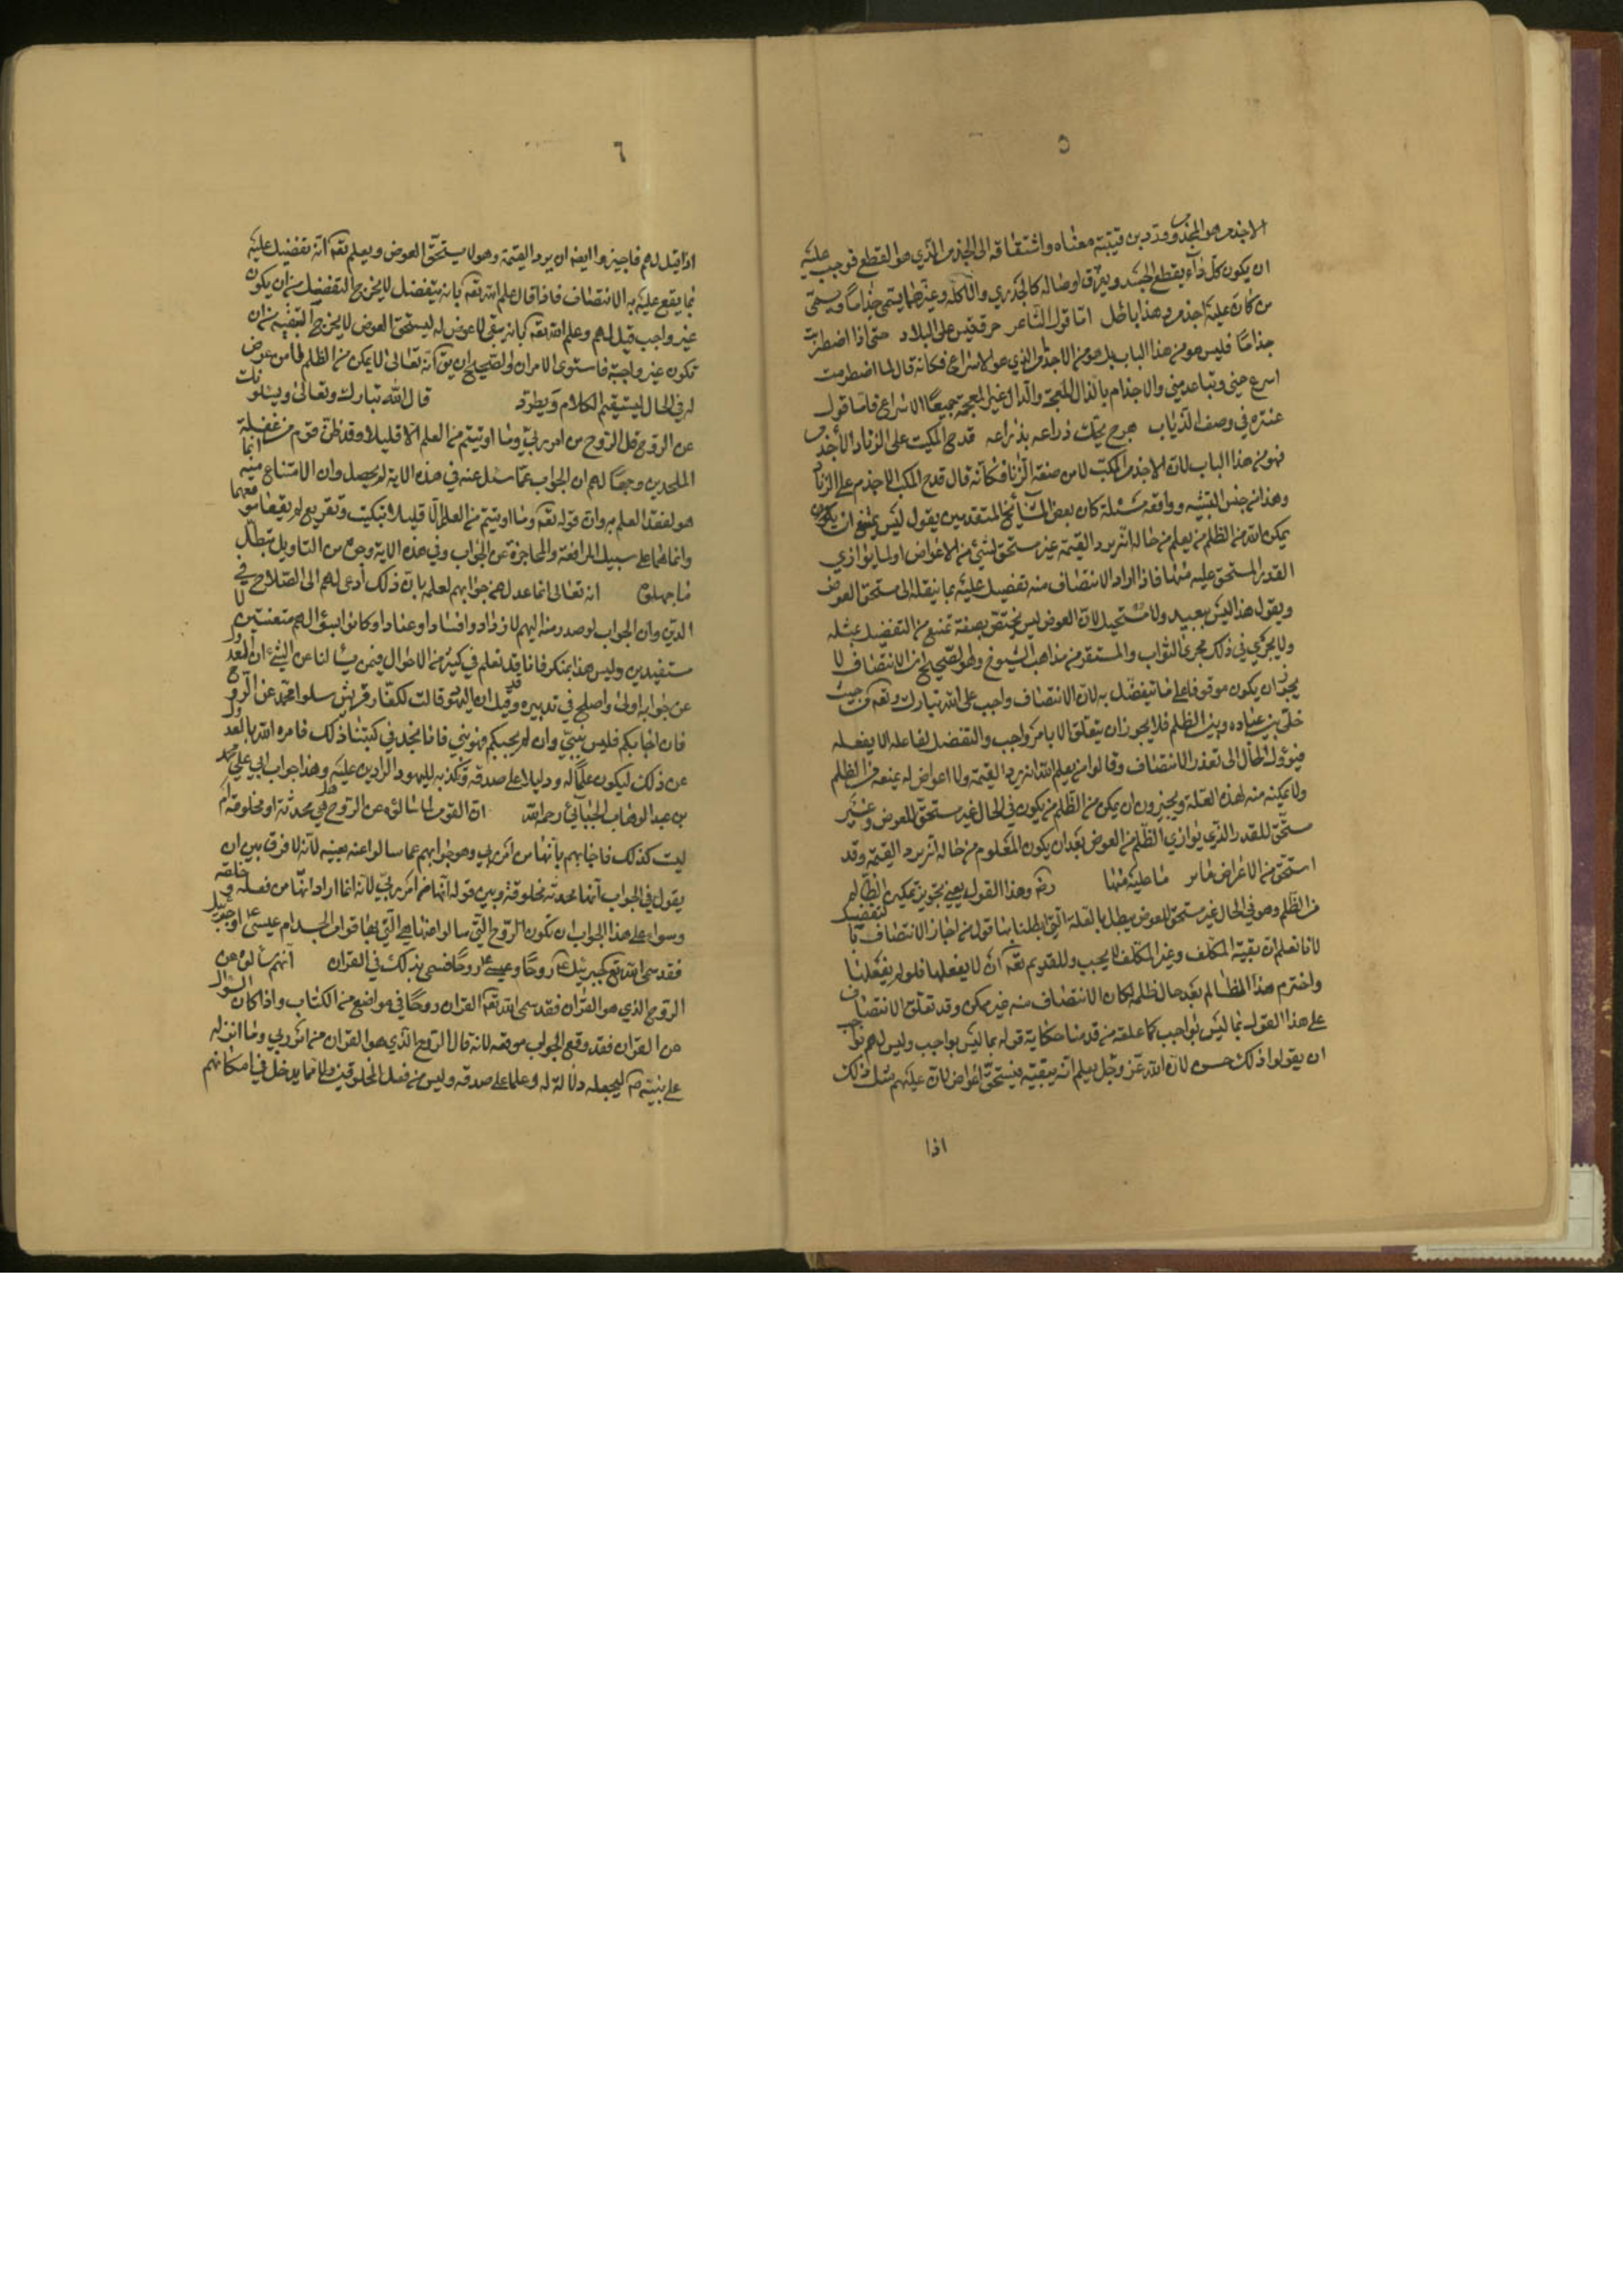 ٥
الاجذم هو المجذوم وردد بن قتيبة معناه واشتقاقه الى الجذم الذي هو القطع فوجب عليه
ان يكون كل داء يقطع الجسد ويفرق اوصاله كالجدري والاكلة وغيرهما يسمى جذاما ويسمى
من كان عليه اجذم وهذا باطل اما قول الشاعر حرق قيس على البلاد حتى اذا اضطرمت
جذاما فليس هو من هذا الباب بل هو من الاجذام الذي هو الاسراع فكانه قال لما اضطرمت
اسرع عني وتباعد مني والاجذام بالذال المعجمة والدال غير المعجمة جميعا الاسراع فاما قول
عنترة في وصف الذباب هزج يحك ذراعه بذراعه قدح المكب على الزناد الاجذم
فهو من هذا الباب لان الاجذم المكب لا من صفة الزناد فكانه قال قدح المكب الاجذم على الزناد
وهذا من حسن التشبيه وواقعه مسئلة كان بعض المشايخ المتقدمين يقول ليس يمتنع ان يكون
يمكن الله من الظلم من يعلم من حاله انه يرد القيمة غير مستحق لشئ من الاعواض او لما يوازي
القدر المستحق عليه منها فاذا اراد الانتصاف منه تفضل عليه بما ينقله الى مستحق العوض
ويقول هذا ليس ببعيد ولا مستحيل لان العوض ليس يختص بصفة تمنع من التفضل بمثله
ولا يجري في ذلك مجرى الثواب والمستقر من مذاهب الشيوخ وهو الصحيح ان الانتصاف لا
يجوز ان يكون موقوفا على ما يتفضل به لان الانتصاف واجب على الله تبارك وتعه من حيث
خلى بين عباده وبين الظلم فلا يجوز ان يتعلق الا بامر واجب والتفضل لفاعله الا يفعله
فيؤول الحال الى تعذر الانتصاف وقالوا من يعلم الله انه يرد القيمة ولا اعواض له يمنعه من الظلم
ولا يمكنه منه لهذه العلة ويجيزون ان يمكن من الظلم من يكون في الحال غير مستحق للعوض وغير
مستحق للقدر الذي يوازي الظلم من العوض بعد ان يكون المعلوم من حاله انه يرد القيمة وقد
استحق من الاعراض ما عليه منها رضه وهذا القول يعني تجويز تمكين الظالم
من الظلم وهو في الحال غير مستحق للعوض يبطل بالعلة التي ابطلنا بها قول من اجاز الانتصاف بالتفضل
لانا نعلم ان تبقية المكلف وغير المكلف لا يجب وللقديم تعه ان لا يفعلها فلو لم يفعلها
واخترم هذا الظالم بعد حال ظلمه لكان الانتصاف منه غير ممكن وقد تعلق الانتصاف
على هذا القول بما ليس بواجب كما علقه من قدمنا حكاية قوله بما ليس بواجب وليس لهم
ان يقولوا ذلك حسن لان الله عز وجل يعلم انه يبقيه فيستحق اعواضا لان عليهم مثل ذلك
اذا
٦
اذا قيل لهم فاجيزوا ايضه ان يرد القيمة وهو لا يستحق العوض ويعلم تعه انه تفضل عليه
بما يقع عليه به الانتصاف فاذا قال علم الله تعه بانه يتفضل لا يخرج التفضل من ان يكون
غير واجب قيل لهم وعلم الله تعه بانه يبقى من لا عوض له ليستحق العوض لا يخرج التبقية من ان
تكون غير واجبة فاستوى الامران والصحيح ان يق انه تعالى لا يمكن من الظلم الا من عوض
له في الحال ليستقيم الكلام ويطرد قال الله تبارك وتعالى ويسئلونك
عن الروح قل الروح من امر ربي وما اوتيتم من العلم الا قليلا وقد ظن قوم من غفلة
الملحدين وجهالهم ان الجواب عما سئل عنه في هذه الاية لم يحصل وان الامتناع منه انما
هو لفقد العلم به وان قوله تعه وما اوتيتم من العلم الا قليلا تبكيت وتقريع لم يقعا موقعهما
وانما هما على سبيل المدافعة والمحاجزة عن الجواب وفي هذه الاية وجوه من التاويل تبطل
ما جهلوه انه تعالى انما عدل عن جوابهم لعلمه بان ذلك ادعى لهم الى الصلاح في
الدين وان الجواب لو صدر منه اليهم لازدادوا فسادا وعنادا وكانوا بسؤالهم متعنتين لا
مستفيدين وليس هذا بمنكر فانا قد نعلم في كثير من الاحوال فيمن يسالنا عن الشئ ان العدول
عن جوابه اولى واصلح في تدبيره وقد قيل ان اليهود قالت لكفار قريش سلوا محمدا عن الروح
فان اجابكم فليس بنبي وان لم يجبكم فهو نبي فانا نجد في كتبنا ذلك فامره الله بالعدول
عن ذلك ليكون علما له ودليلا على صدقه وتكذيبه لليهود الرادين عليه وهذا جواب ابي علي محمد
بن عبد الوهاب الجبائي رحمه الله ان القوم انما سالوه عن الروح هل هي محدثة او مخلوقة ام
ليست كذلك فاجابهم بانها من امر ربي وهو جوابهم عما سالوا عنه بعينه لانه لا فرق بين ان
يقول في الجواب انها محدثة مخلوقة وبين قوله انها من امر ربي لانه انما اراد انها من فعله وخلقه
وسواء على هذا الجواب ان تكون الروح التي سالوا عنها هي التي بها قوام الجسد ام عيسى ع او جبرئيل
فقد سمى الله تع جبرئيل ع روحا وعيسى ع روحا فسمى بذلك في القران انهم سالوه عن
الروح الذي هو القران فقد سمى الله تعه القران روحا في مواضع من الكتاب واذا كان السؤال
عن القران فقد وقع الجواب موقعه لانه قال الروح الذي هو القران من امر ربي وما انزله
على نبيه ص ليجعله دلالة له وعلما على صدقه وليس من فعل المخلوقين ولا مما يدخل في امكانهم